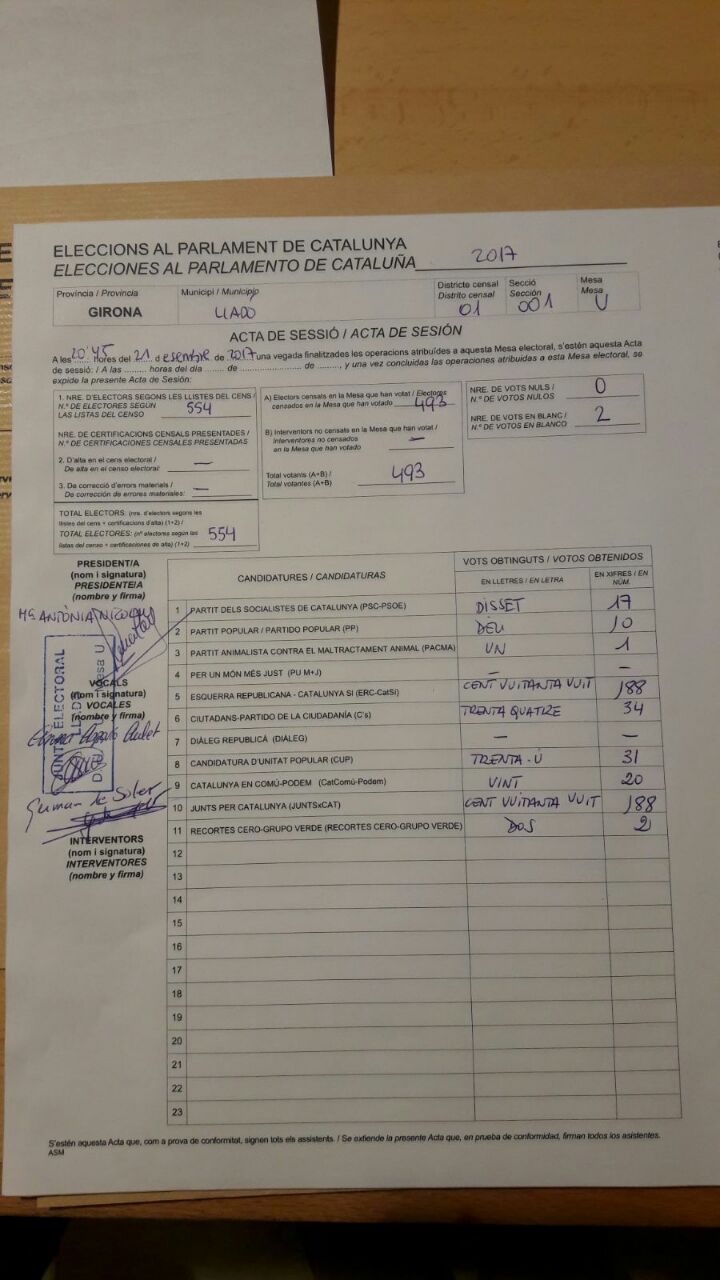 ELECCIONS AL PARLAMENT DE CATALUNYA
ELECCIONES AL PARLAMENTO DE CATALUÑA 2017
Província / Provincia
GIRONA
Municipi / Municipio
LLADO
Districte censal
Distrito censal
01
Secció
Sección
001
Mesa
Mesa
U
ACTA DE SESSIÓ / ACTA DE SESIÓN
A les 20'45 hores del 21 d esembre de 2017 una vegada finalitzades les operacions atribuïdes a aquesta Mesa electoral, s'estén aquesta Acta
de sessió: / A las ......... hores del día ...... de ......................... de ........, y una vez concluidas las operaciones atribuidas a esta Mesa electoral, se
expide la presente Acta de Sesión:
1. NRE. D'ELECTORS SEGONS LES LLISTES DEL CENS /
N.º DE ELECTORES SEGÚN
LAS LISTAS DEL CENSO 554
NRE. DE CERTIFICACIONS CENSALS PRESENTADES /
N.º DE CERTIFICACIONES CENSALES PRESENTADAS
2. D'alta en el cens electoral /
De alta en el censo electoral: —
3. De correcció d'errors materials /
De corrección de errores materiales: —
TOTAL ELECTORS: (nre. d'electors segons les
llistes del cens + certificacions d'alta) (1+2) /
TOTAL ELECTORES: (nº electores según las
listas del censo + certificaciones de alta) (1+2) 554
A) Electors censats en la Mesa que han votat / Electores
censados en la Mesa que han votado 493
B) Interventors no censats en la Mesa que han votat /
Interventores no censados
en la Mesa que han votado —
Total votants (A+B) /
Total votantes (A+B) 493
NRE. DE VOTS NULS /
N.º DE VOTOS NULOS 0
NRE. DE VOTS EN BLANC /
N.º DE VOTOS EN BLANCO 2
PRESIDENT/A
(nom i signatura)
PRESIDENTE/A
(nombre y firma)
Mª ANTÒNIA
JUNTA ELECTORAL
Mesa U
VOCALS
(nom i signatura)
VOCALES
(nombre y firma)
German de Soler
INTERVENTORS
(nom i signatura)
INTERVENTORES
(nombre y firma)
CANDIDATURES / CANDIDATURAS
VOTS OBTINGUTS / VOTOS OBTENIDOS
EN LLETRES / EN LETRA
EN XIFRES / EN NÚM.
1 PARTIT DELS SOCIALISTES DE CATALUNYA (PSC-PSOE) DISSET 17
2 PARTIT POPULAR / PARTIDO POPULAR (PP) DEU 10
3 PARTIT ANIMALISTA CONTRA EL MALTRACTAMENT ANIMAL (PACMA) UN 1
4 PER UN MÓN MÉS JUST (PU M+J) — —
5 ESQUERRA REPUBLICANA - CATALUNYA SÍ (ERC-CatSí) CENT VUITANTA VUIT 188
6 CIUTADANS-PARTIDO DE LA CIUDADANÍA (C's) TRENTA QUATRE 34
7 DIÀLEG REPUBLICÀ (DIÀLEG) — —
8 CANDIDATURA D'UNITAT POPULAR (CUP) TRENTA-Ú 31
9 CATALUNYA EN COMÚ-PODEM (CatComú-Podem) VINT 20
10 JUNTS PER CATALUNYA (JUNTSxCAT) CENT VUITANTA VUIT 188
11 RECORTES CERO-GRUPO VERDE (RECORTES CERO-GRUPO VERDE) DOS 2
12
13
14
15
16
17
18
19
20
21
22
23
S'estén aquesta Acta que, com a prova de conformitat, signen tots els assistents. / Se extiende la presente Acta que, en prueba de conformidad, firman todos los asistentes.
ASM